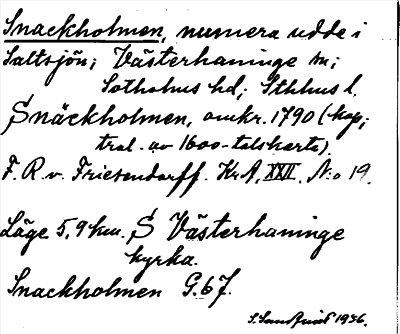 Snackholmen, numera udde i
Saltsjön; Västerhaninge sn;
Sotholms hd; Sthlms l.
Snäckholmen, omkr. 1790 (kop;
tral. av 1600-talskarta).
F. R. v. Friesendorff. KrA, XXII, N:o 19.
Läge 5,9 km. S Västerhaninge
kyrka.
Snackholmen G.67.
1946.